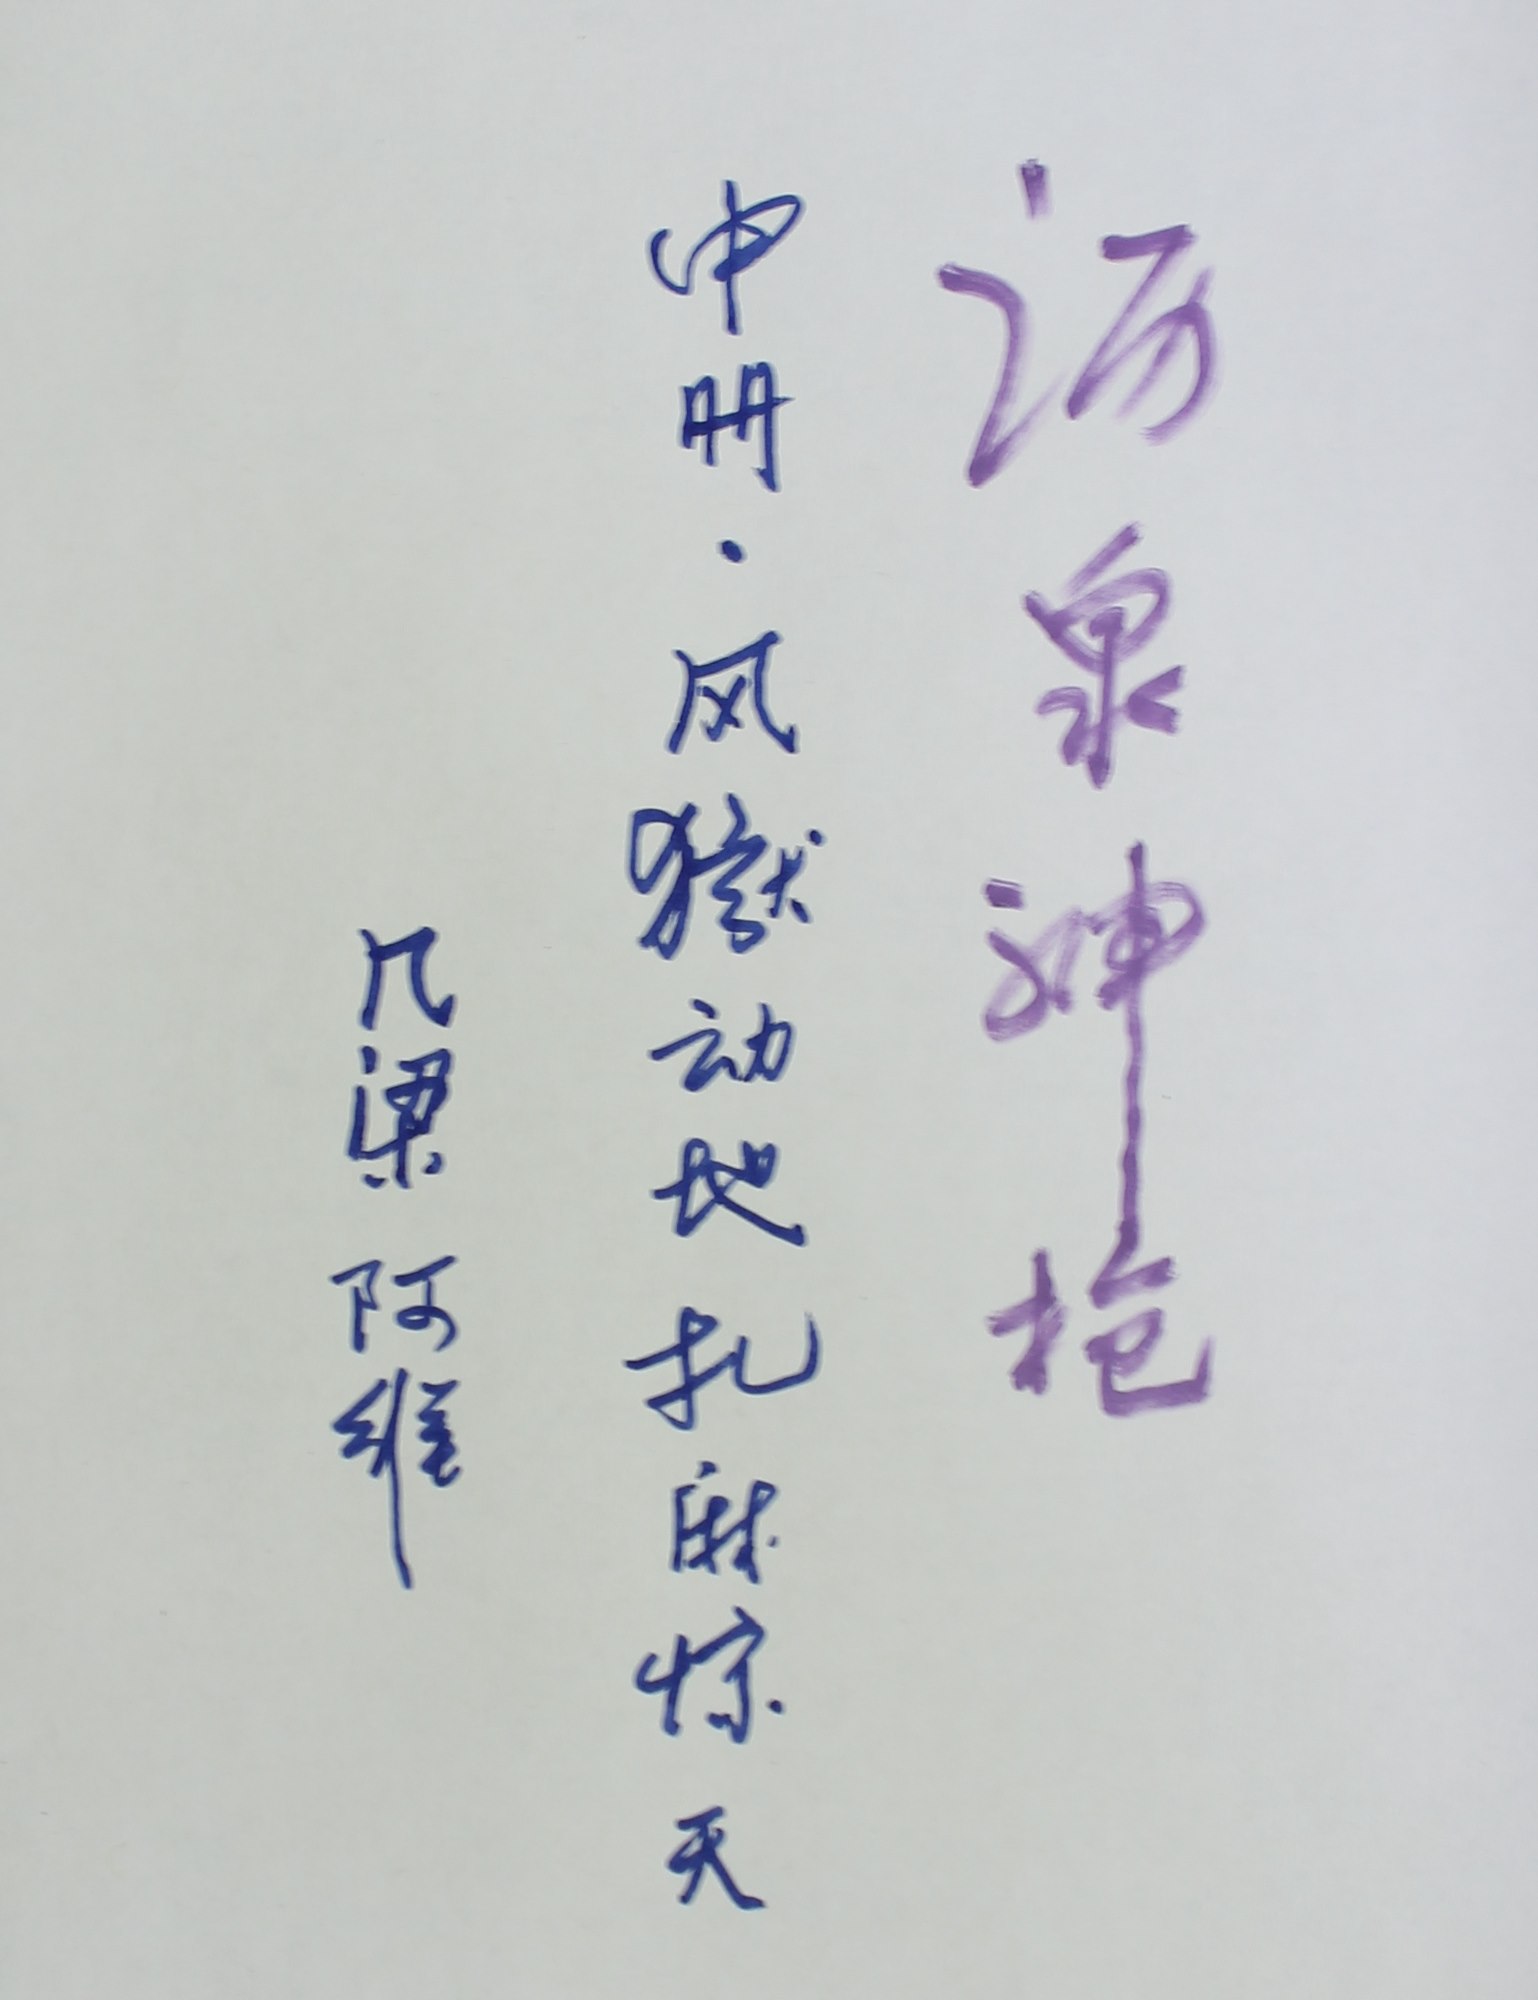 沥泉神枪
中册·风獄动地扎麻惊天
几梁 阿维